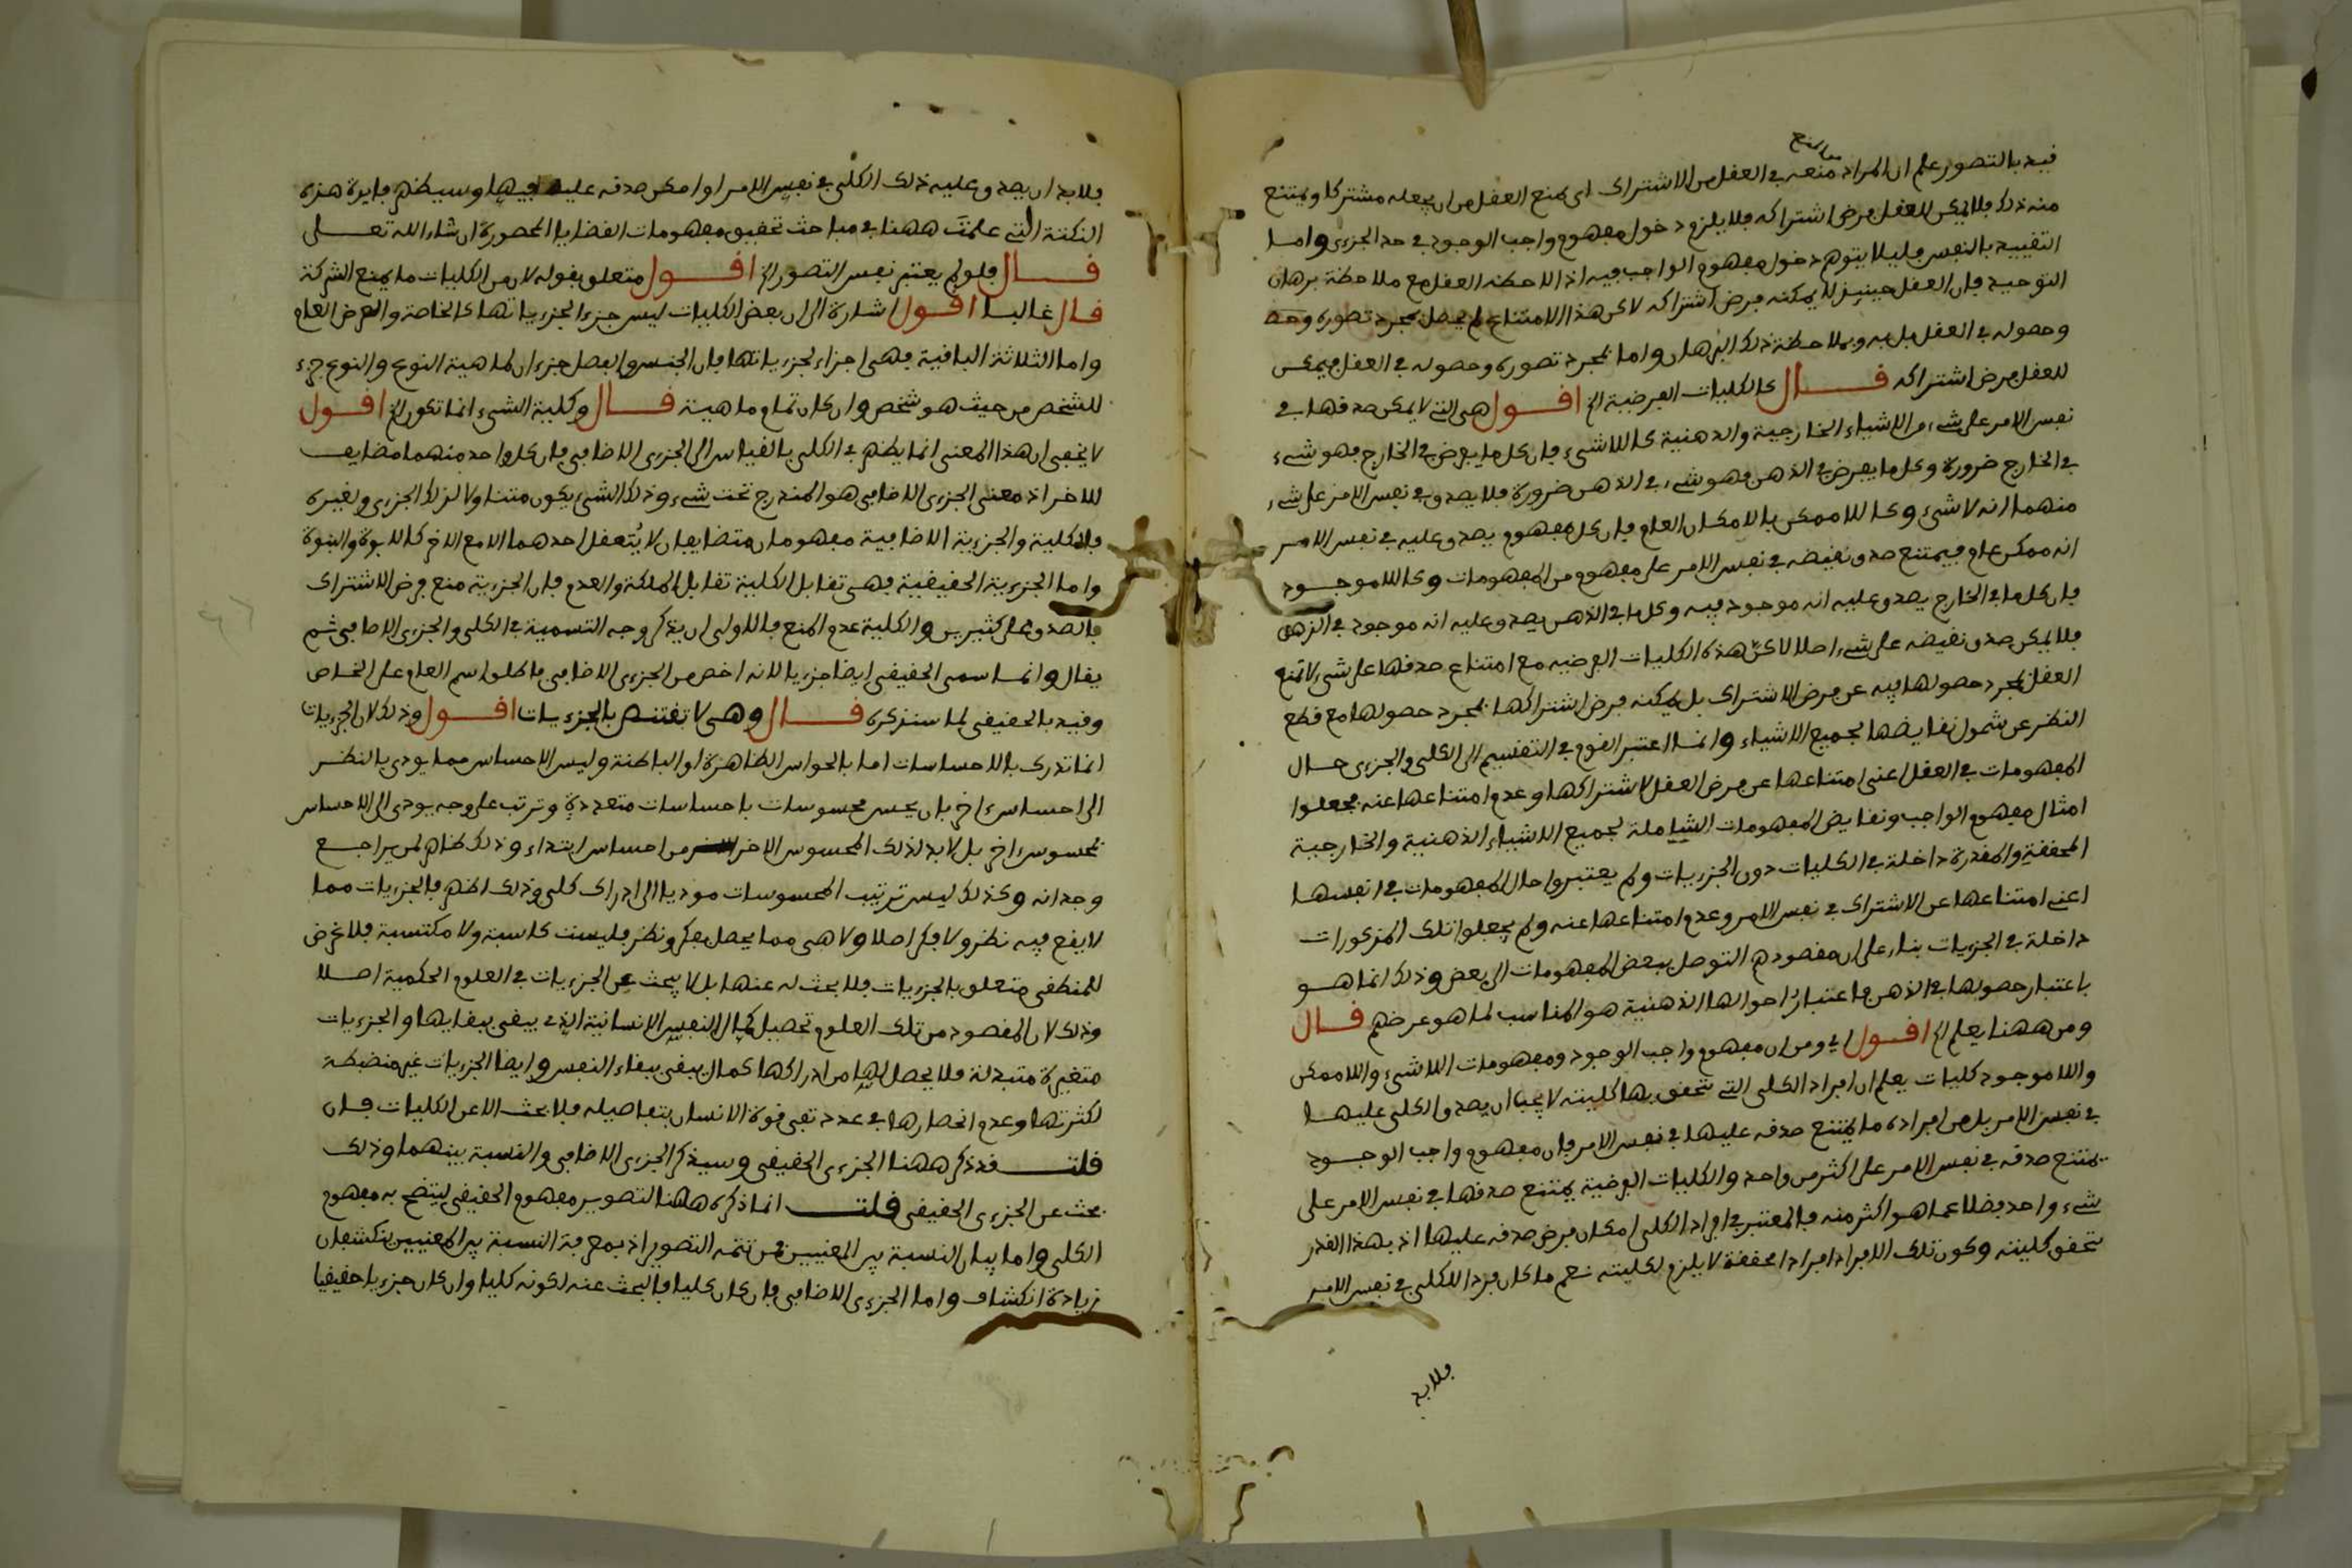 معه المنع
فيد بالتصور علم ان المراد منعه في العقل من الاشتراك اى يمنع العقل من ان يجعله مشتركا ويمتنع
منه ذلك فلا يمكن للعقل فرض اشتراكه فلا يلزم دخول مفهوم واجب الوجود في حد الجزءى واما
التقييد بالنفس فليلا يتوهم دخول مفهوم الواجب فيه اذا لاحظه العقل مع ملاحظة برهان
التوحيد فان العقل حينيذ لا يمكنه فرض اشتراكه لاكن هذا الامتناع لم يحصل بمجرد تصوره
وحصوله في العقل بل به وبملاحظة ذلك البرهان واما بمجرد تصوره وحصوله في العقل فيمكن
للعقل فرض اشتراكه قال كالكليات الفرضية الخ اقول هى التي لا يمكن صدقها في
نفس الامر على شىء من الاشياء الخارجية والذهنية كاللاشىء فان كل ما يفرض في الخارج فهو شىء
في الخارج ضرورة وكل ما يفرض في الذهن فهو شىء في الذهن ضرورة فلا يصدق في نفس الامر على شىء
منهما انه لا شىء وكاللاممكن بالامكان العام فان كل مفهوم يصدق عليه في نفس الامر
انه ممكن عام فيمتنع صدق نقيضه في نفس الامر على مفهوم من المفهومات وكاللاموجود
فان كل ما في الخارج يصدق عليه انه موجود فيه وكل ما في الذهن يصدق عليه انه موجود في الذهن
فلا يمكن صدق نقيضه على شىء اصلا لاكنّ هذه الكليات الفرضيه مع امتناع صدقها على شىء لا تمنع
العقل بمجرد حصولها فيه عن فرض الاشتراك بل يمكنه فرض اشتراكها بمجرد حصولها مع قطع
النظر عن شمول نقايضها لجميع الاشياء وانما اعتبر القوم في التقسيم الى الكلى والجزءى حال
المفهومات في العقل اعنى امتناعها عن فرض العقل لاشتراكها وعدم امتناعها عنه فجعلوا
امثال مفهوم الواجب ونقايض المفهومات الشاملة لجميع الاشياء الذهنية والخارجية
المحققة والمقدرة داخلة في الكليات دون الجزءيات ولم يعتبروا حال المفهومات في انفسها
اعنى امتناعها عن الاشتراك في نفس الامر وعدم امتناعها عنه ولم يجعلوا تلك المذكورات
داخلة في الجزءيات بناء على ان مقصودهم التوصل ببعض المفهومات الى بعض وذلك انما هو
باعتبار حصولها في الذهن فاعتبار احوالها الذهنية هو المناسب لما هو غرضهم قال
ومن ههنا يعلم الخ اقول اي ومن ان مفهوم واجب الوجود ومفهومات اللاشىء واللاممكن
واللاموجود كليات يعلم ان افراد الكلى التي تتحقق بها كليته لا يجب ان يصدق الكلى عليها
في نفس الامر بل من افراده ما يمتنع صدقه عليها في نفس الامر فان مفهوم واجب الوجود
يمتنع صدقه في نفس الامر على اكثر من واحد والكليات الفرضية يمتنع صدقها في نفس الامر على
شىء واحد فضلا عما هو اكثر منه فالمعتبر في افراد الكلى امكان فرض صدقه عليها اذ بهذا القدر
تتحقق كليته وكون تلك الافراد افرادا محققة لا يلزم لكليته نعم ما كان فردا للكلى في نفس الامر
فلا بد
فلا بد ان يصدق عليه ذلك الكلى في نفس الامر او امكن صدقه عليه فيها وسيظهر فايدة هذه
النكتة التي علمتَ ههنا في مباحث تحقيق مفهومات القضايا المحصورة ان شاء الله تعلى
قال فلو لم يعتبر نفس التصور الخ اقول متعلق بقوله لان من الكليات ما يمنع الشركة
قال غالبا اقول اشارة الى ان بعض الكليات ليس جزءا لجزءياتها كالخاصة والعرض العام
واما الثلاثة الباقية فهى اجزاء لجزءياتها فان الجنس والفصل جزءان لماهية النوع والنوع جزء
للشخص من حيث هو شخص وان كان تمام ماهيته قال وكلية الشىء انما تكون الخ اقول
لا يخفى ان هذا المعنى انما يظهر في الكلى بالقياس الى الجزءى الاضافى فان كل واحد منهما مضايف
للاخر اذ معنى الجزءى الاضافى هو المندرج تحت شىء وذلك الشىء يكون متناولا لذلك الجزءى ولغيره
فالكلية والجزءية الاضافية مفهومان متضايفان لا يُتعقل احدهما الا مع الاخر كالابوة والبنوة
واما الجزءية الحقيقية فهى تقابل الكلية تقابل الملكة والعدم فان الجزءية منع فرض الاشتراك
بالصدق على كثيرين والكلية عدم المنع فالاولى ان يذكر وجه التسمية في الكلى والجزءى الاضافى ثم
يقال وانما سمى الحقيقى ايضا جزءيا لانه اخص من الجزءى الاضافى فاطلق اسم العام على الخاص
وقيد بالحقيقى لما سنذكره قال وهى لا تقتنص بالجزءيات اقول وذلك لان الجزءيات
انما تدرك بالاحساسات اما بالحواس الظاهرة او الباطنة وليس الاحساس مما يودى بالنظر
الى احساس ءاخر بان يحس محسوسات باحساسات متعددة وترتب على وجه يودى الى الاحساس
بمحسوس ءاخر بل لا بد لذلك المحسوس الاخر من احساس ابتداء وذلك ظاهر لمن يراجع
وجدانه وكذلك ليس ترتيب المحسوسات موديا الى ادراك كلى وذلك اظهر فالجزءيات مما
لا يقع فيه نظر ولا فكر اصلا ولا هى مما يحصل بفكر ونظر فليست كاسبة ولا مكتسبة فلا غرض
للمنطقى متعلق بالجزءيات فلا بحث له عنها بل لا يبحث عن الجزءيات في العلوم الحكمية اصلا
وذلك لان المقصود من تلك العلوم تحصيل كمال النفس الانسانية الذي يبقى ببقايها والجزءيات
متغيرة متبدلة فلا يحصل لها من ادراكها كمال يبقى ببقاء النفس وايضا الجزءيات غير منضبطة
لكثرتها وعدم انحصارها في عدد تفى قوة الانسان بتفاصيله فلا بحث الا عن الكليات فان
قلت قد ذكر ههنا الجزءى الحقيقى وسيذكر الجزءى الاضافى والنسبة بينهما وذلك
بحث عن الجزءى الحقيقى قلت انما ذكره ههنا لتصوير مفهوم الحقيقى ليتضح به مفهوم
الكلى واما بيان النسبة بين المعنيين فمن تتمه التصوير اذ بمعرفة النسبة بين المعنيين ينكشفان
زيادة انكشاف واما الجزءى الاضافى فان كان كليا فالبحث عنه لكونه كليا وان كان جزءيا حقيقيا